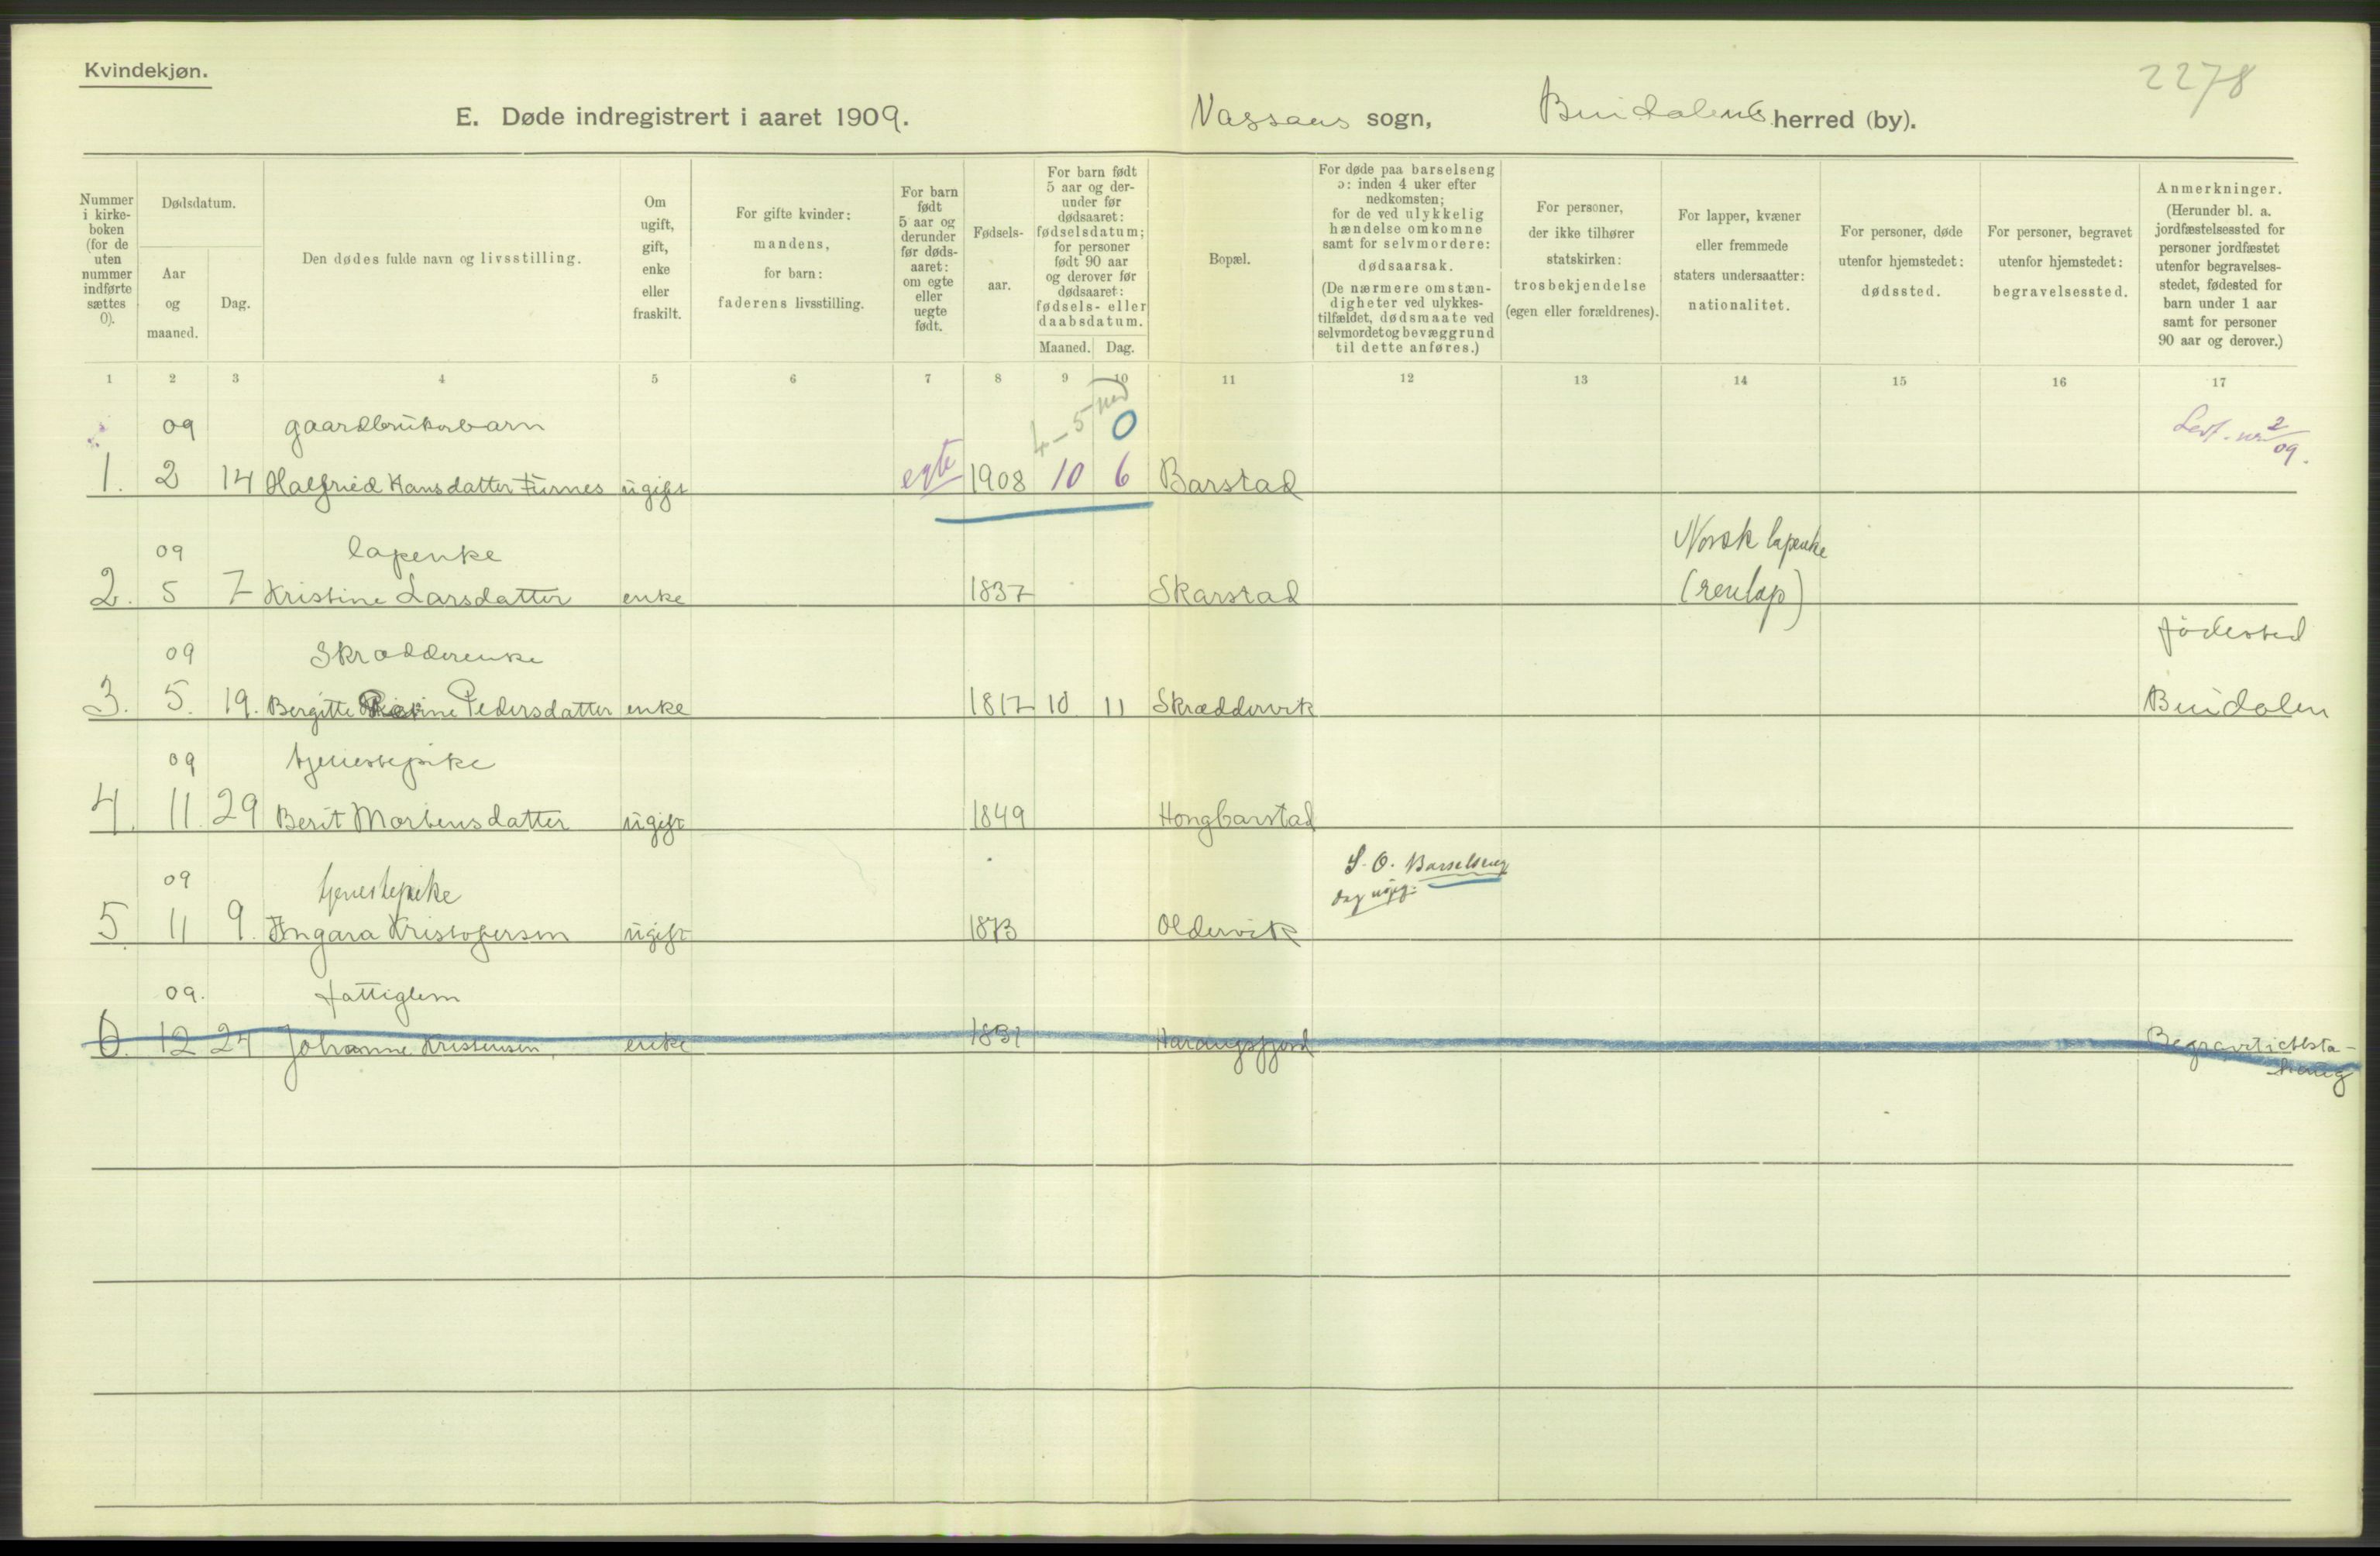 Kvindekjøn.
2278
E. Døde indregistrert i aaret 1909.
Vassaas sogn, Bindalens herred (by).
Nummer i kirke- boken (for de uten nummer indførte sættes 0).
Dødsdatum.
Aar og maaned.
Dag.
Den dødes fulde navn og livsstilling.
Om ugift, gift, enke eller fraskilt.
For gifte kvinder: mandens, for barn: faderens livsstilling.
For barn født 5 aar og derunder før døds- aaret: om egte eller uegte født.
Fødsels- aar.
For barn født 5 aar og der- under før dødsaaret: fødselsdatum; for personer født 90 aar og derover før dødsaaret: fødsels- eller daabsdatum.
Maaned. Dag.
Bopæl.
For døde paa barselseng ɔ: inden 4 uker efter nedkomsten; for de ved ulykkelig hændelse omkomne samt for selvmordere: dødsaarsak.
(De nærmere omstæn- digheter ved ulykkes- tilfældet, dødsmaate ved selvmordet og bevæggrund til dette anføres.)
For personer, der ikke tilhører statskirken: trosbekjendelse (egen eller forældrenes).
For lapper, kvæner eller fremmede staters undersaatter: nationalitet.
For personer, døde utenfor hjemstedet: dødssted.
For personer, begravet utenfor hjemstedet: begravelsessted.
Anmerkninger. (Herunder bl. a. jordfæstelsessted for personer jordfæstet utenfor begravelses- stedet, fødested for barn under 1 aar samt for personer 90 aar og derover.)
1 2 3 4 5 6 7 8 9 10 11 12 13 14 15 16 17
09 gaardbrukerbarn 4-5 0 2/09.
1. 2 14 Halfried Hansdatter Furnes ugift egte 1908 10 6 Barstad
09 lapenke Norsk lapenke
2. 5 7 Kristine Larsdatter enke 1837 Skarstad (renlap)
09 Skrædderenke fødested
3. 5. 19. Bergitte Pedersdatter enke 1817 10 11 Skræddervik Bindalen
09 tjenestepike
4. 11. 29 Berit Mortensdatter ugift 1849 Hongbarstad
09 tjenestepike S. O. Barselseng
5 11 9. Ingara Kristofersen ugift 1873 Oldervik
09. fattiglem
6. 12 24 Johanne Kristensen, enke 1831 Harangsfjord